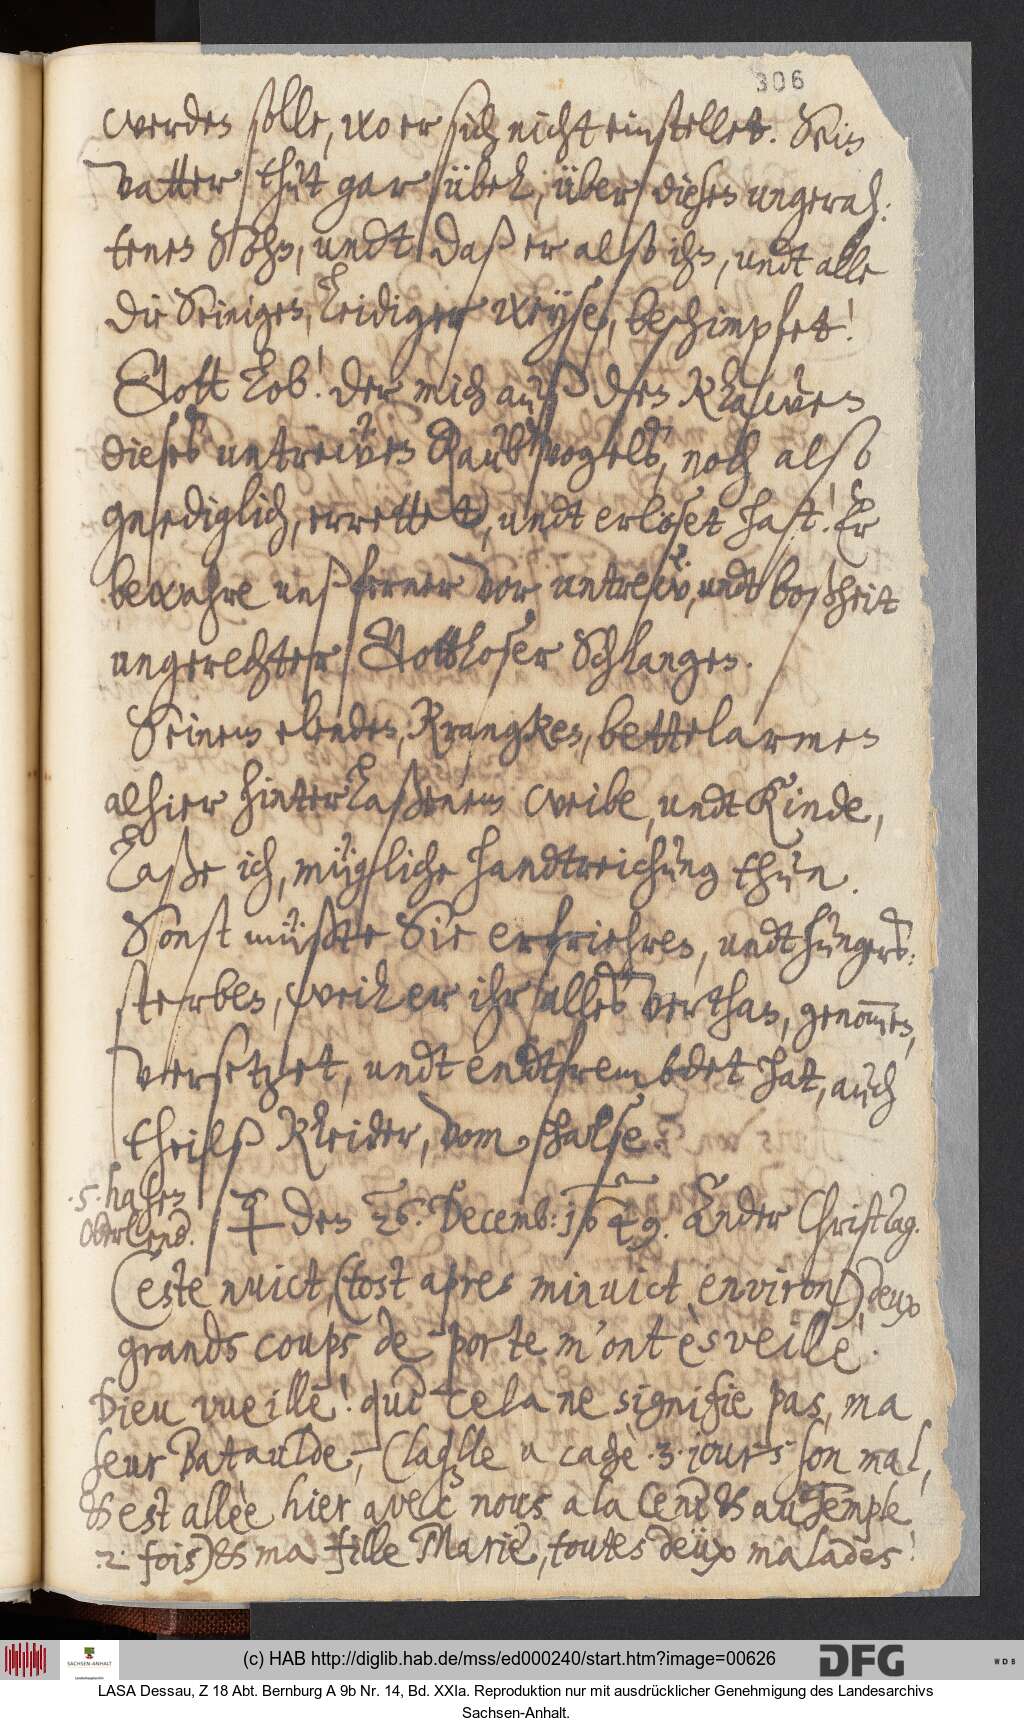 306
werden solle, wo er sich nicht einstellet. Sein
Vatter thut gar übel, über diesen ungerah:
tenen Sohn, undt daß er also ihn, undt alle
die Seinigen, Leidiger weyse, beschimpfet!
Gott Lob! der mich auß den Klawen
dieses untrewen Raubvogels, noch also
gnediglich, errettet, undt erlöset hat! Er
bewahre unß ferner vor untrew, undt boßheit
ungerechter Gottloser Schlangen.
Seinem elenden, Krangken, bettelarmen
alhier hinterLaßenem weibe, undt Kinde,
Laße ich, mügliche handtreichung thun.
Sonst müßte Sie erfriehren, undt hungers:
sterben, weil er ihr alles verthan, genom̅en,
versetzet, undt endtfrembdet hat, auch
theilß Kleider, vom halse.
.5. hasen
Oberlend.
den 26. Decemb: 1649. Ander Christtag.
Ceste nuict, (tost apres minuict environ), deux
grands coups de porte m'ont èsveillè.
Dieu vueille! que cela ne signifie pas, ma
seur Bataulde, (laqlle a cachè .3. jours son mal,
& est allèe hier avec nous a la Cene & au Temple
.2. fois) & ma fille Marie, toutes deux malades!
(c) HAB http://diglib.hab.de/mss/ed000240/start.htm?image=00626
SACHSEN-ANHALT
DFG
WDB
LASA Dessau, Z 18 Abt. Bernburg A 9b Nr. 14, Bd. XXIa. Reproduktion nur mit ausdrücklicher Genehmigung des Landesarchivs
Sachsen-Anhalt.